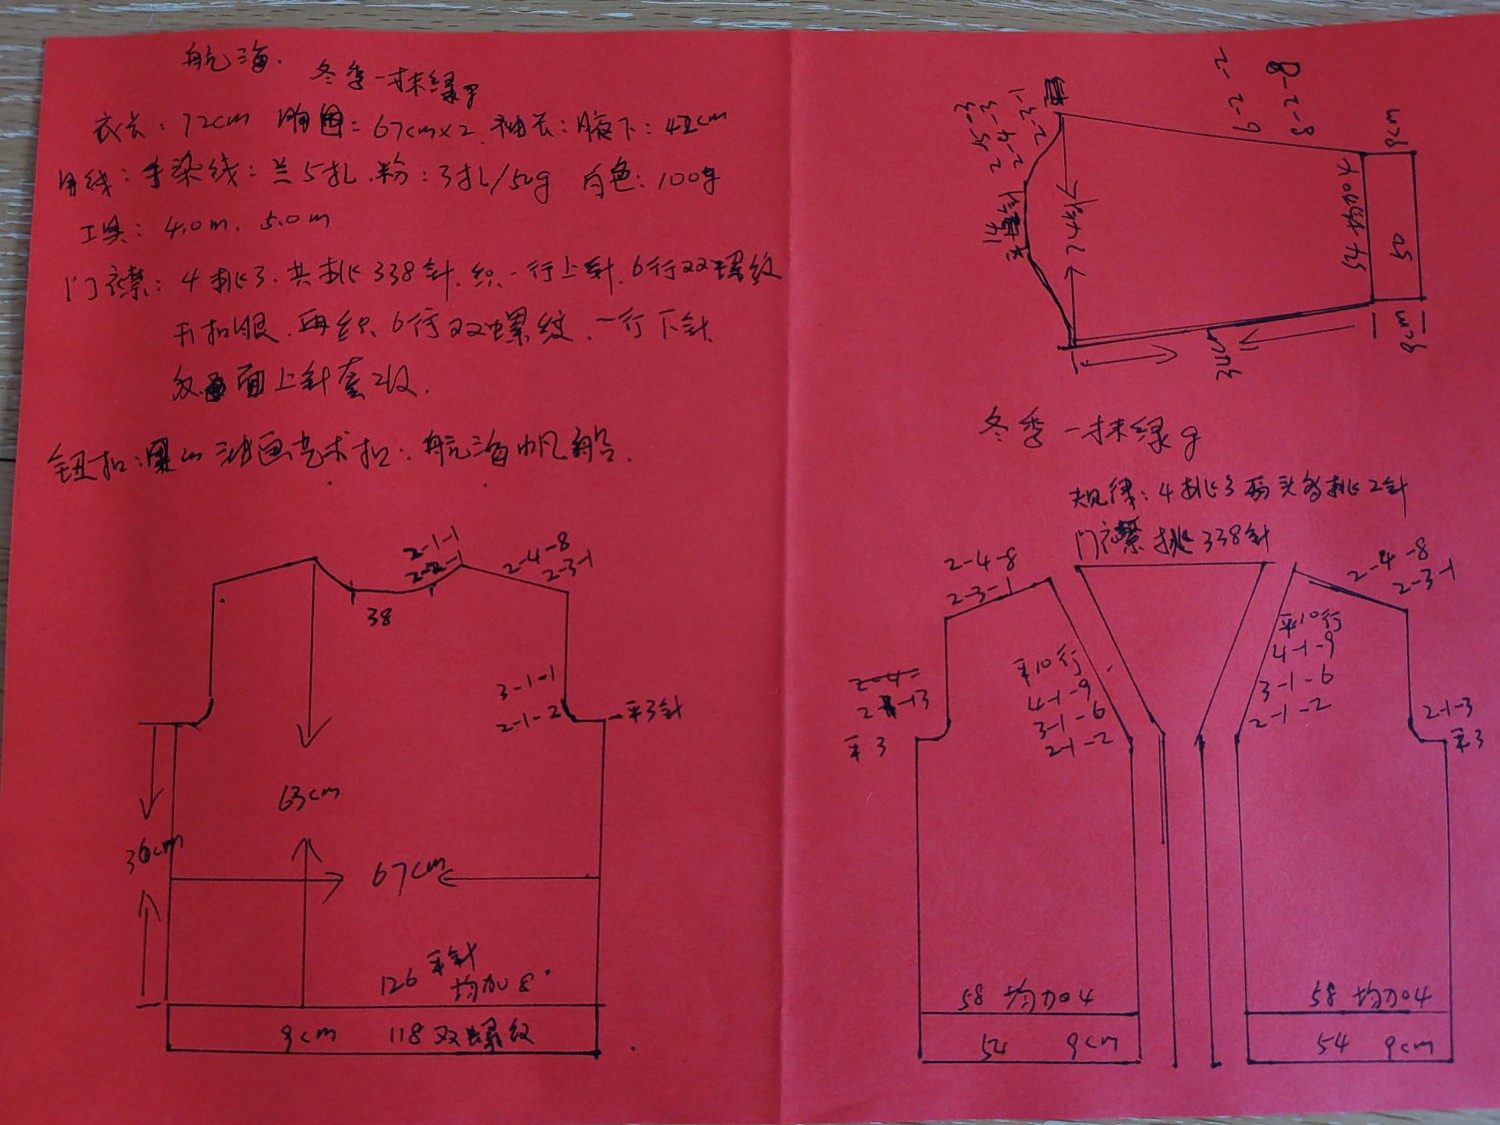 航海.
冬季一抹绿g
衣长: 72cm 胸围=67cm×2. 袖长: 腋下: 42cm
用线: 手染线: 兰5扎. 粉: 3扎/50g 白色: 100g
工具: 4.0m. 5.0m
门襟: 4挑3. 共挑338针. 织一行上针. 6行双螺纹
开扣眼. 再织6行双螺纹. 一行下针
反面上针套收.
钮扣: 油画艺术扣: 航海帆船.
2-1-1
2-2-1
2-4-8
2-3-1
38
3-1-1
2-1-2
平3针
63cm
36cm
67cm
126 平针
均加8
9cm 118双螺纹
2-5-3
2-4-3
2-3-1
14针
平
6-2-2
8-2-8
9cm
54均加4
50
9cm
冬季一抹绿g
规律: 4挑3 两头各挑2针
门襟挑338针
2-4-8
2-3-1
平10行
4-1-9
3-1-6
2-1-2
平3
58 均加4
54 9cm
2-4-8
2-3-1
平10行
4-1-9
3-1-6
2-1-2
2-1-3
平3
58 均加4
54 9cm